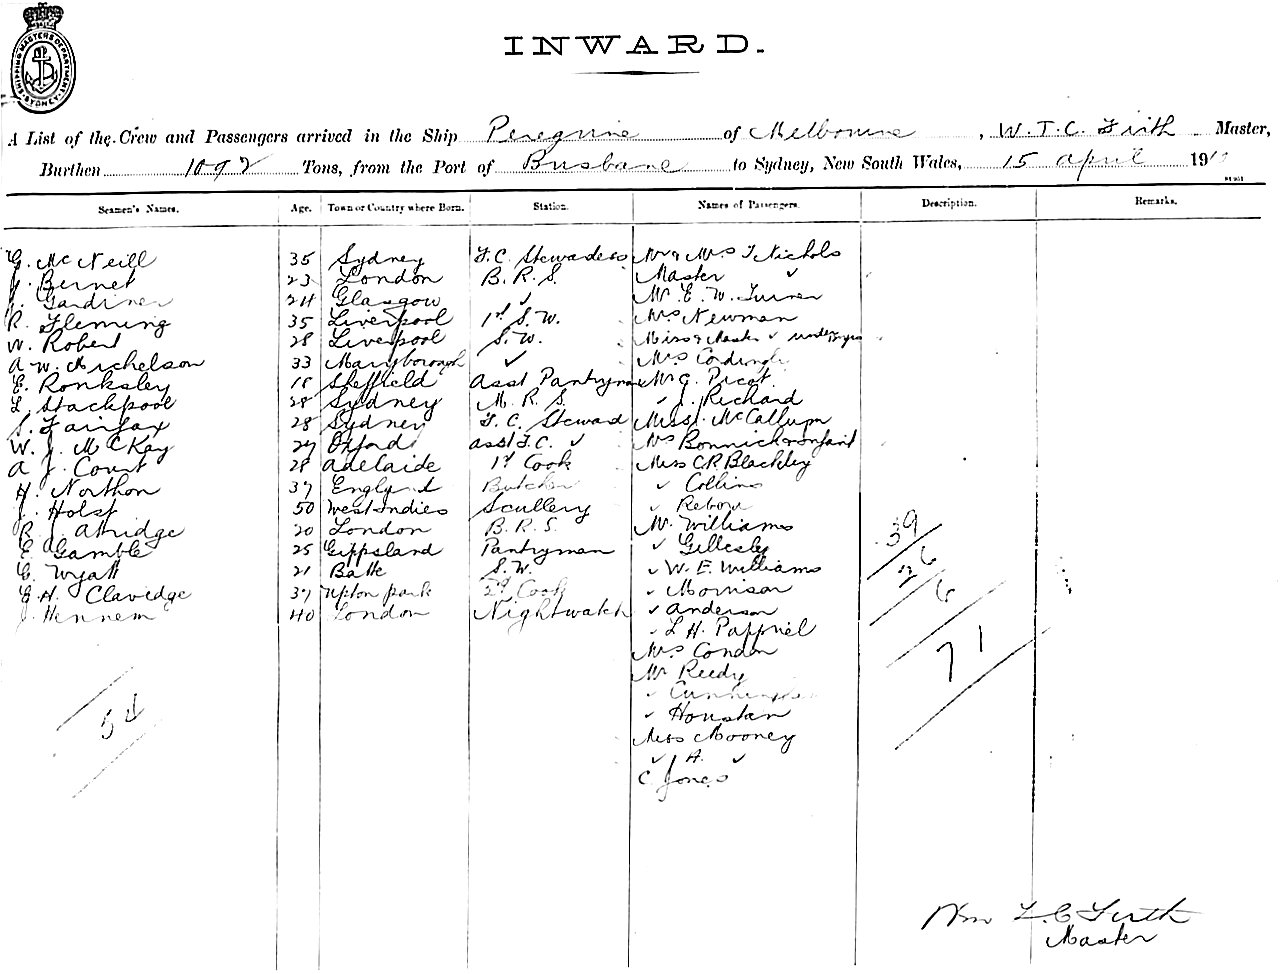 SHIPPING MASTERS DEPARTMENT SYDNEY
INWARD.
A List of the Crew and Passengers arrived in the Ship Peregrine of Melbourne, W. T. C. Firth Master,
Burthen 1092 Tons, from the Port of Brisbane to Sydney, New South Wales, 15 April 191
Seamen's Names. Age. Town or Country where Born. Station. Names of Passengers. Description. Remarks.
G. McNeill 35 Sydney F.C. Stewardess Mr & Mrs T Nichols
Bernet 23 London B.R.S. Master ✓
Gardiner 24 Glasgow ✓ Mr E. W. Turner
R. Fleming 35 Liverpool 1st S.W. Mrs Newman
W. Robert 28 Liverpool S.W. Miss & Master ✓ under
A W. Michelson 33 Maryborough ✓ Mrs Cordingly
E. Ronksley 18 Sheffield Asst Pantryman Mr G. Picot
L. Stackpool 28 Sydney M.R.S. ✓ J. Richard
S. Fairfax 28 Sydney F.C. Steward Miss J. McCallum
W. J. McKay 27 Oxford Asst F.C. ✓ Mrs Bonnick & infant
A J. Court 28 Adelaide 1st Cook Miss C R Blackley
H. Northon 37 England Butcher ✓ Collins
J. Holst 50 West Indies Scullery ✓
R. J. Attridge 20 London B.R.S. Mr Williams
E. Gamble 25 Gippsland Pantryman ✓ Gillesby
C. Wyatt 21 Bath S.W. ✓ W. E. Williams
E. H. Clavedge 37 Upton Park 2nd Cook ✓ Morrison
J. Hennem 40 London Nightwatch ✓ Anderson
✓ L H. Pappriel
Mrs Condon
Mr Reedy
✓
✓ Houstan
Miss Mooney
✓ A. ✓
C Jones
54
39
26
6
71
Wm T. C. Firth
Master